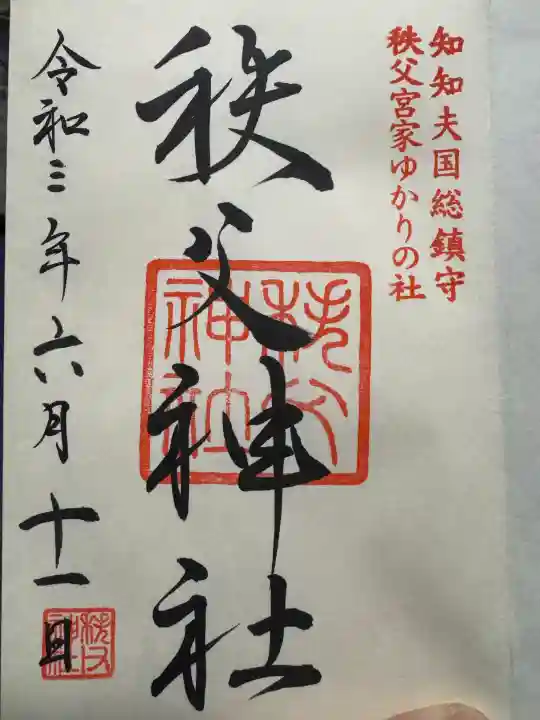 知知夫国総鎮守
秩父宮家ゆかりの社
秩父神社
秩父神社
令和三年六月十一日
秩父神社